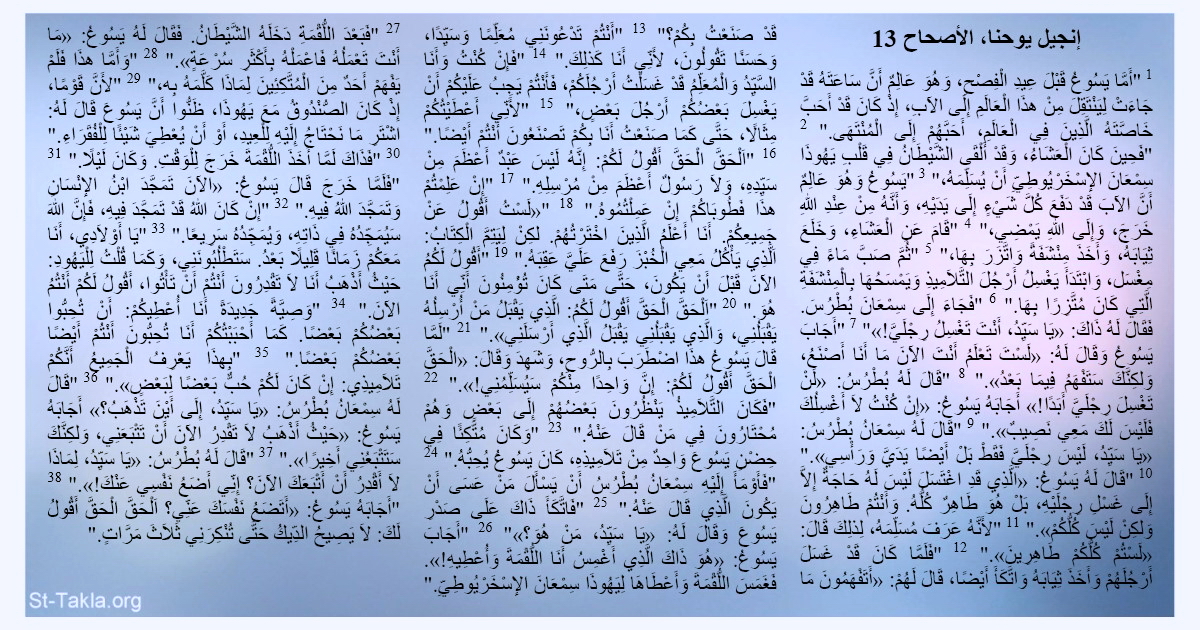 إنجيل يوحنا، الأصحاح 13
1 "أَمَّا يَسُوعُ قَبْلَ عِيدِ الْفِصْحِ، وَهُوَ عَالِمٌ أَنَّ سَاعَتَهُ قَدْ
جَاءَتْ لِيَنْتَقِلَ مِنْ هذَا الْعَالَمِ إِلَى الآبِ، إِذْ كَانَ قَدْ أَحَبَّ
خَاصَّتَهُ الَّذِينَ فِي الْعَالَمِ، أَحَبَّهُمْ إِلَى الْمُنْتَهَى." 2
"فَحِينَ كَانَ الْعَشَاءُ، وَقَدْ أَلْقَى الشَّيْطَانُ فِي قَلْبِ يَهُوذَا
سِمْعَانَ الإِسْخَرْيُوطِيِّ أَنْ يُسَلِّمَهُ،" 3 "يَسُوعُ وَهُوَ عَالِمٌ
أَنَّ الآبَ قَدْ دَفَعَ كُلَّ شَيْءٍ إِلَى يَدَيْهِ، وَأَنَّهُ مِنْ عِنْدِ اللهِ
خَرَجَ، وَإِلَى اللهِ يَمْضِي،" 4 "قَامَ عَنِ الْعَشَاءِ، وَخَلَعَ
ثِيَابَهُ، وَأَخَذَ مِنْشَفَةً وَاتَّزَرَ بِهَا،" 5 "ثُمَّ صَبَّ مَاءً فِي
مِغْسَل، وَابْتَدَأَ يَغْسِلُ أَرْجُلَ التَّلاَمِيذِ وَيَمْسَحُهَا بِالْمِنْشَفَةِ
الَّتِي كَانَ مُتَّزِرًا بِهَا." 6 "فَجَاءَ إِلَى سِمْعَانَ بُطْرُسَ.
فَقَالَ لَهُ ذَاكَ: «يَا سَيِّدُ، أَنْتَ تَغْسِلُ رِجْلَيَّ!»" 7 "أَجَابَ
يَسُوعُ وَقَالَ لَهُ: «لَسْتَ تَعْلَمُ أَنْتَ الآنَ مَا أَنَا أَصْنَعُ،
وَلكِنَّكَ سَتَفْهَمُ فِيمَا بَعْدُ»." 8 "قَالَ لَهُ بُطْرُسُ: «لَنْ
تَغْسِلَ رِجْلَيَّ أَبَدًا!» أَجَابَهُ يَسُوعُ: «إِنْ كُنْتُ لاَ أَغْسِلُكَ
فَلَيْسَ لَكَ مَعِي نَصِيبٌ»." 9 "قَالَ لَهُ سِمْعَانُ بُطْرُسُ:
«يَا سَيِّدُ، لَيْسَ رِجْلَيَّ فَقَطْ بَلْ أَيْضًا يَدَيَّ وَرَأْسِي»."
10 "قَالَ لَهُ يَسُوعُ: «الَّذِي قَدِ اغْتَسَلَ لَيْسَ لَهُ حَاجَةٌ إِلاَّ
إِلَى غَسْلِ رِجْلَيْهِ، بَلْ هُوَ طَاهِرٌ كُلُّهُ. وَأَنْتُمْ طَاهِرُونَ
وَلكِنْ لَيْسَ كُلُّكُمْ»." 11 "لأَنَّهُ عَرَفَ مُسَلِّمَهُ، لِذلِكَ قَالَ:
«لَسْتُمْ كُلُّكُمْ طَاهِرِينَ»." 12 "فَلَمَّا كَانَ قَدْ غَسَلَ
أَرْجُلَهُمْ وَأَخَذَ ثِيَابَهُ وَاتَّكَأَ أَيْضًا، قَالَ لَهُمْ: «أَتَفْهَمُونَ مَا
قَدْ صَنَعْتُ بِكُمْ؟" 13 "أَنْتُمْ تَدْعُونَنِي مُعَلِّمًا وَسَيِّدًا،
وَحَسَنًا تَقُولُونَ، لأَنِّي أَنَا كَذلِكَ." 14 "فَإِنْ كُنْتُ وَأَنَا
السَّيِّدُ وَالْمُعَلِّمُ قَدْ غَسَلْتُ أَرْجُلَكُمْ، فَأَنْتُمْ يَجِبُ عَلَيْكُمْ أَنْ
يَغْسِلَ بَعْضُكُمْ أَرْجُلَ بَعْضٍ،" 15 "لأَنِّي أَعْطَيْتُكُمْ
مِثَالًا، حَتَّى كَمَا صَنَعْتُ أَنَا بِكُمْ تَصْنَعُونَ أَنْتُمْ أَيْضًا."
16 "اَلْحَقَّ الْحَقَّ أَقُولُ لَكُمْ: إِنَّهُ لَيْسَ عَبْدٌ أَعْظَمَ مِنْ
سَيِّدِهِ، وَلاَ رَسُولٌ أَعْظَمَ مِنْ مُرْسِلِهِ." 17 "إِنْ عَلِمْتُمْ
هذَا فَطُوبَاكُمْ إِنْ عَمِلْتُمُوهُ." 18 "«لَسْتُ أَقُولُ عَنْ
جَمِيعِكُمْ. أَنَا أَعْلَمُ الَّذِينَ اخْتَرْتُهُمْ. لكِنْ لِيَتِمَّ الْكِتَابُ:
اَلَّذِي يَأْكُلُ مَعِي الْخُبْزَ رَفَعَ عَلَيَّ عَقِبَهُ" 19 "أَقُولُ لَكُمُ
الآنَ قَبْلَ أَنْ يَكُونَ، حَتَّى مَتَى كَانَ تُؤْمِنُونَ أَنِّي أَنَا
هُوَ." 20 "اَلْحَقَّ الْحَقَّ أَقُولُ لَكُمُ: الَّذِي يَقْبَلُ مَنْ أُرْسِلُهُ
يَقْبَلُنِي، وَالَّذِي يَقْبَلُنِي يَقْبَلُ الَّذِي أَرْسَلَنِي»." 21 "لَمَّا
قَالَ يَسُوعُ هذَا اضْطَرَبَ بِالرُّوحِ، وَشَهِدَ وَقَالَ: «الْحَقَّ
الْحَقَّ أَقُولُ لَكُمْ: إِنَّ وَاحِدًا مِنْكُمْ سَيُسَلِّمُنِي!»." 22
"فَكَانَ التَّلاَمِيذُ يَنْظُرُونَ بَعْضُهُمْ إِلَى بَعْضٍ وَهُمْ
مُحْتَارُونَ فِي مَنْ قَالَ عَنْهُ." 23 "وَكَانَ مُتَّكِئًا فِي
حِضْنِ يَسُوعَ وَاحِدٌ مِنْ تَلاَمِيذِهِ، كَانَ يَسُوعُ يُحِبُّهُ." 24
"فَأَوْمَأَ إِلَيْهِ سِمْعَانُ بُطْرُسُ أَنْ يَسْأَلَ مَنْ عَسَى أَنْ
يَكُونَ الَّذِي قَالَ عَنْهُ." 25 "فَاتَّكَأَ ذَاكَ عَلَى صَدْرِ
يَسُوعَ وَقَالَ لَهُ: «يَا سَيِّدُ، مَنْ هُوَ؟»" 26 "أَجَابَ
يَسُوعُ: «هُوَ ذَاكَ الَّذِي أَغْمِسُ أَنَا اللُّقْمَةَ وَأُعْطِيهِ!».
فَغَمَسَ اللُّقْمَةَ وَأَعْطَاهَا لِيَهُوذَا سِمْعَانَ الإِسْخَرْيُوطِيِّ."
27 "فَبَعْدَ اللُّقْمَةِ دَخَلَهُ الشَّيْطَانُ. فَقَالَ لَهُ يَسُوعُ: «مَا
أَنْتَ تَعْمَلُهُ فَاعْمَلْهُ بِأَكْثَرِ سُرْعَةٍ»." 28 "وَأَمَّا هذَا فَلَمْ
يَفْهَمْ أَحَدٌ مِنَ الْمُتَّكِئِينَ لِمَاذَا كَلَّمَهُ بِه،" 29 "لأَنَّ قَوْمًا،
إِذْ كَانَ الصُّنْدُوقُ مَعَ يَهُوذَا، ظَنُّوا أَنَّ يَسُوعَ قَالَ لَهُ:
اشْتَرِ مَا نَحْتَاجُ إِلَيْهِ لِلْعِيدِ، أَوْ أَنْ يُعْطِيَ شَيْئًا لِلْفُقَرَاءِ."
30 "فَذَاكَ لَمَّا أَخَذَ اللُّقْمَةَ خَرَجَ لِلْوَقْتِ. وَكَانَ لَيْلًا." 31
"فَلَمَّا خَرَجَ قَالَ يَسُوعُ: «الآنَ تَمَجَّدَ ابْنُ الإِنْسَانِ
وَتَمَجَّدَ اللهُ فِيهِ." 32 "إِنْ كَانَ اللهُ قَدْ تَمَجَّدَ فِيهِ، فَإِنَّ اللهَ
سَيُمَجِّدُهُ فِي ذَاتِهِ، وَيُمَجِّدُهُ سَرِيعًا." 33 "يَا أَوْلاَدِي، أَنَا
مَعَكُمْ زَمَانًا قَلِيلًا بَعْدُ. سَتَطْلُبُونَنِي، وَكَمَا قُلْتُ لِلْيَهُودِ:
حَيْثُ أَذْهَبُ أَنَا لاَ تَقْدِرُونَ أَنْتُمْ أَنْ تَأْتُوا، أَقُولُ لَكُمْ أَنْتُمُ
الآنَ." 34 "وَصِيَّةً جَدِيدَةً أَنَا أُعْطِيكُمْ: أَنْ تُحِبُّوا
بَعْضُكُمْ بَعْضًا. كَمَا أَحْبَبْتُكُمْ أَنَا تُحِبُّونَ أَنْتُمْ أَيْضًا
بَعْضُكُمْ بَعْضًا." 35 "بِهذَا يَعْرِفُ الْجَمِيعُ أَنَّكُمْ
تَلاَمِيذِي: إِنْ كَانَ لَكُمْ حُبٌّ بَعْضًا لِبَعْضٍ»." 36 "قَالَ
لَهُ سِمْعَانُ بُطْرُسُ: «يَا سَيِّدُ، إِلَى أَيْنَ تَذْهَبُ؟» أَجَابَهُ
يَسُوعُ: «حَيْثُ أَذْهَبُ لاَ تَقْدِرُ الآنَ أَنْ تَتْبَعَنِي، وَلكِنَّكَ
سَتَتْبَعُنِي أَخِيرًا»." 37 "قَالَ لَهُ بُطْرُسُ: «يَا سَيِّدُ، لِمَاذَا
لاَ أَقْدِرُ أَنْ أَتْبَعَكَ الآنَ؟ إِنِّي أَضَعُ نَفْسِي عَنْكَ!»." 38
"أَجَابَهُ يَسُوعُ: «أَتَضَعُ نَفْسَكَ عَنِّي؟ اَلْحَقَّ الْحَقَّ أَقُولُ
لَكَ: لاَ يَصِيحُ الدِّيكُ حَتَّى تُنْكِرَنِي ثَلاَثَ مَرَّاتٍ."
St-Takla.org